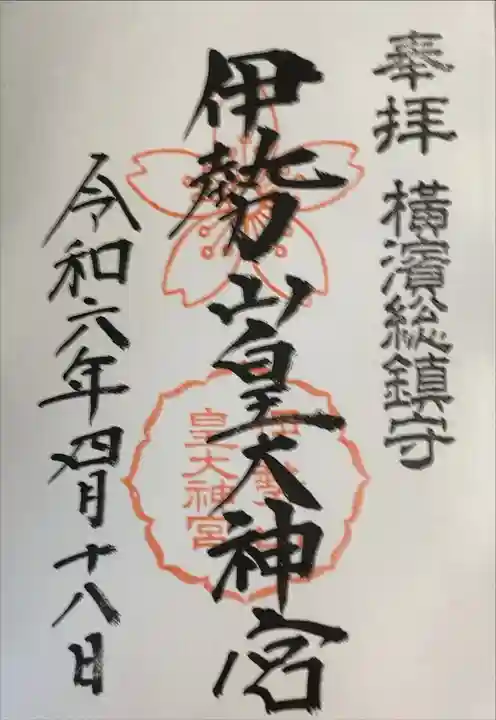 奉拝 横濱総鎮守
伊勢山皇大神宮
伊勢山
皇大神宮
令和六年四月十八日